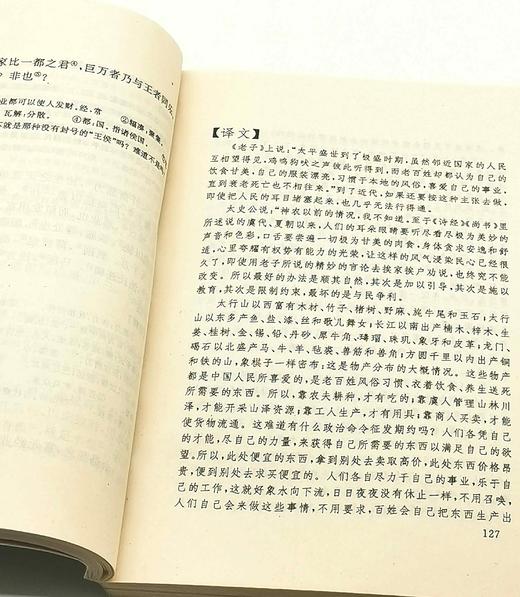 家比一都之君④,巨万者乃与王者同乐
?非也⑤?
业都可以使人发财,经,常
瓦解:分散。
④都:国,指诸侯国。
就是那种没有封号的“王侯”吗?难道不是
【译文】
《老子》上说:“太平盛世到了极盛时期,虽然邻近国家的人民
互相望得见,鸡鸣狗吠之声彼此听得到,而老百姓却都认为自己的
饮食甘美,自己的服装漂亮,习惯于本地的风俗,喜爱自己的事业,
直到衰老死亡也不相往来。”到了近代,如果还要按这种主张去做,
即使把人民的耳目堵塞起来,也几乎无法行得通。
太史公说:“神农以前的情况,我不知道。至于《诗经》《尚书》里
所述说的虞代、夏朝以来,人们的耳朵眼睛要听尽看尽极为美妙的
声音和色彩,口舌要尝遍一切极为甘美的肉食,身体贪求安逸和舒
适,心里夸耀有权势有能力的光荣,让这样的风气浸染民心已经很
久了,即使用老子所说的精妙的言论去挨家挨户劝说,也终究不能
改变。所以最好的办法是顺其自然,其次是加以引导,其次是施以
教育,其次是限制约束,最坏的是与民争利。
太行山以西富有木材、竹子、楮树、野麻、旄牛尾和玉石;太行
山以东多产鱼、盐、漆、丝和歌儿舞女;长江以南出产楠木、梓木、生
姜、桂树、金、锡、铅、丹砂、犀牛角、瑇瑁、珠玑、象牙和皮革;龙门、
碣石以北盛产马、牛、羊、毡裘、兽筋和兽角;方圆千里以内出产铜
和铁的山,象棋子一样密布;这是物产分布的大概情况。这些物产
都是中国人民所喜爱的,是老百姓风俗习惯、衣着饮食、养生送死
所需要的东西。所以,靠农夫耕种,才有吃的;靠虞人管理山林川
泽,才能开采山泽资源;靠工人生产,才有用具;靠商人买卖,才能
使货物流通。这难道有什么政治命令征发期约吗?人们各凭自己
的才能,尽自己的力量,来获得自己所需要的东西以满足自己的欲
望。所以,此处便宜的东西,拿到别处去卖取高价,此处东西价格昂
贵,便到别处去求买便宜的。人们各自尽力于自己的事业,乐于自
己的工作,这就好象水向下流,日日夜夜没有休止一样,不用召唤,
人们自己会来做这些事情,不用要求,百姓会自己把东西生产出
127